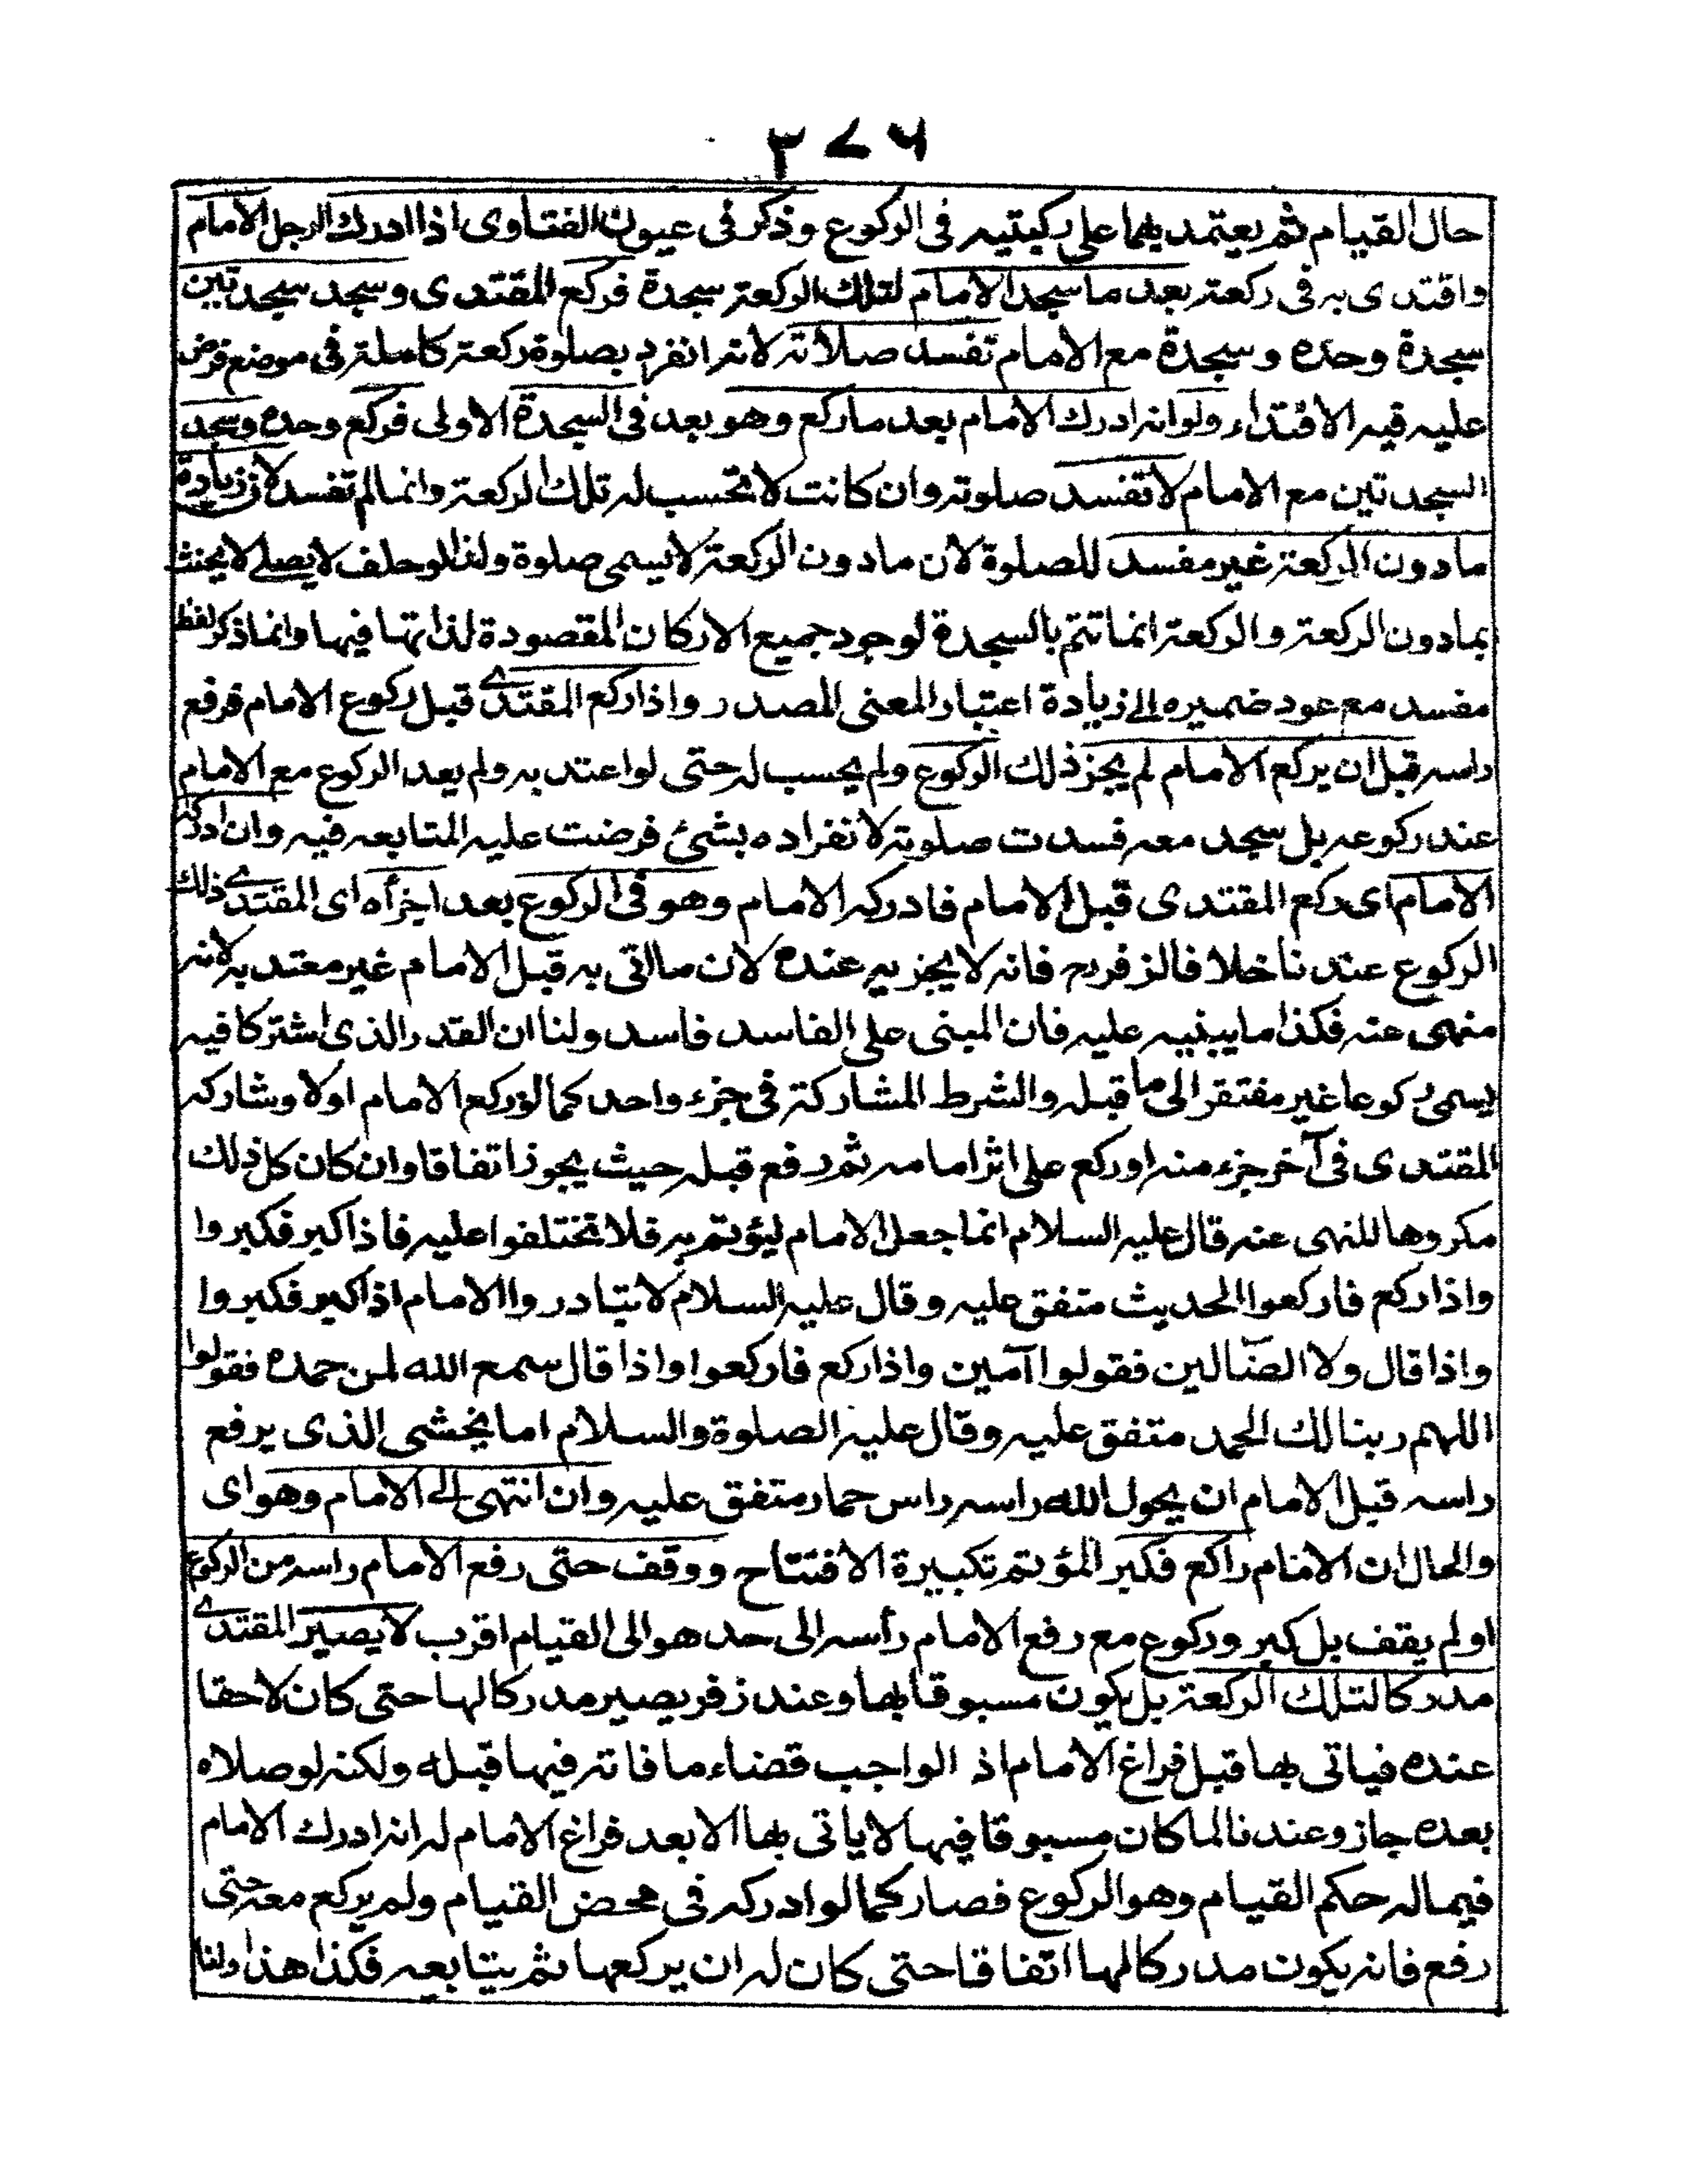 ٣٧٦
حال القيام ثم يعتمد بهما على ركبتيه فى الركوع وذكر فى عيون الفتاوى اذا ادرك الرجل الامام
واقتدى به فى ركعة بعد ما سجد الامام لتلك الركعة سجدة فركع المقتدى وسجد سجدتين
سجدة وحده وسجدة مع الامام تفسد صلاته لانه انفرد بصلوة ركعة كاملة فى موضع فرض
عليه فيه الاقتداء ولو انه ادرك الامام بعد ما ركع وهو بعد فى السجدة الاولى فركع وحده وسجد
السجدتين مع الامام لا تفسد صلوته وان كانت لا تحسب له تلك الركعة وانما لم تفسد لان زيادة
ما دون الركعة غير مفسد للصلوة لان ما دون الركعة لا يسمى صلوة ولذا لو حلف لا يصلى لا يحنث
بما دون الركعة والركعة انما تتم بالسجدة لوجود جميع الاركان المقصودة لذاتها فيها وانما ذكر لفظ
مفسد مع عود ضميره الى زيادة اعتبارا لمعنى المصدر واذا ركع المقتدى قبل ركوع الامام فرفع
راسه قبل ان يركع الامام لم يجز ذلك الركوع ولم يحسب له حتى لو اعتد به ولم يعد الركوع مع الامام
عند ركوعه بل سجد معه فسدت صلوته لانفراده بشئ فرضت عليه المتابعه فيه وان ادركه
الامام اى ركع المقتدى قبل الامام فادركه الامام وهو فى الركوع بعد اجزأه اى المقتدى ذلك
الركوع عندنا خلافا لزفر رح فانه لا يجزيه عنده لان ما اتى به قبل الامام غير معتد به لانه
منهى عنه فكذا ما يبنيه عليه فان المبنى على الفاسد فاسد ولنا ان القدر الذى اشتركا فيه
يسمى ركوعا غير مفتقر الى ما قبله والشرط المشاركة فى جزء واحد كما لو ركع الامام اولا وشاركه
المقتدى فى آخر جزء منه او ركع على اثر امامه ثم رفع قبله حيث يجوز اتفاقا وان كان كل ذلك
مكروها للنهى عنه قال عليه السلام انما جعل الامام ليؤتم به فلا تختلفوا عليه فاذا كبر فكبروا
واذا ركع فاركعوا الحديث متفق عليه وقال عليه السلام لا تبادروا الامام اذا كبر فكبروا
واذا قال ولا الضالين فقولوا آمين واذا ركع فاركعوا واذا قال سمع الله لمن حمده فقولوا
اللهم ربنا لك الحمد متفق عليه وقال عليه الصلوة والسلام اما يخشى الذى يرفع
راسه قبل الامام ان يحول الله راسه راس حمار متفق عليه وان انتهى الى الامام وهو اى
والحال ان الامام راكع فكبر المؤتم تكبيرة الافتتاح ووقف حتى رفع الامام راسه من الركوع
او لم يقف بل كبر وركوع مع رفع الامام رأسه الى حد هو الى القيام اقرب لا يصير المقتدى
مدركا لتلك الركعة بل يكون مسبوقا بها وعند زفر يصير مدركا لها حتى كان لاحقا
عنده فياتى بها قبل فراغ الامام اذ الواجب قضاء ما فاته فيها قبله ولكنه لو صلاه
بعده جاز وعندنا لما كان مسبوقا فيها لا ياتى بها الا بعد فراغ الامام له انه ادرك الامام
فيما له حكم القيام وهو الركوع فصار كما لو ادركه فى محض القيام ولم يركع معه حتى
رفع فانه يكون مدركا لها اتفاقا حتى كان له ان يركعها ثم يتابعه فكذا هذا ولنا